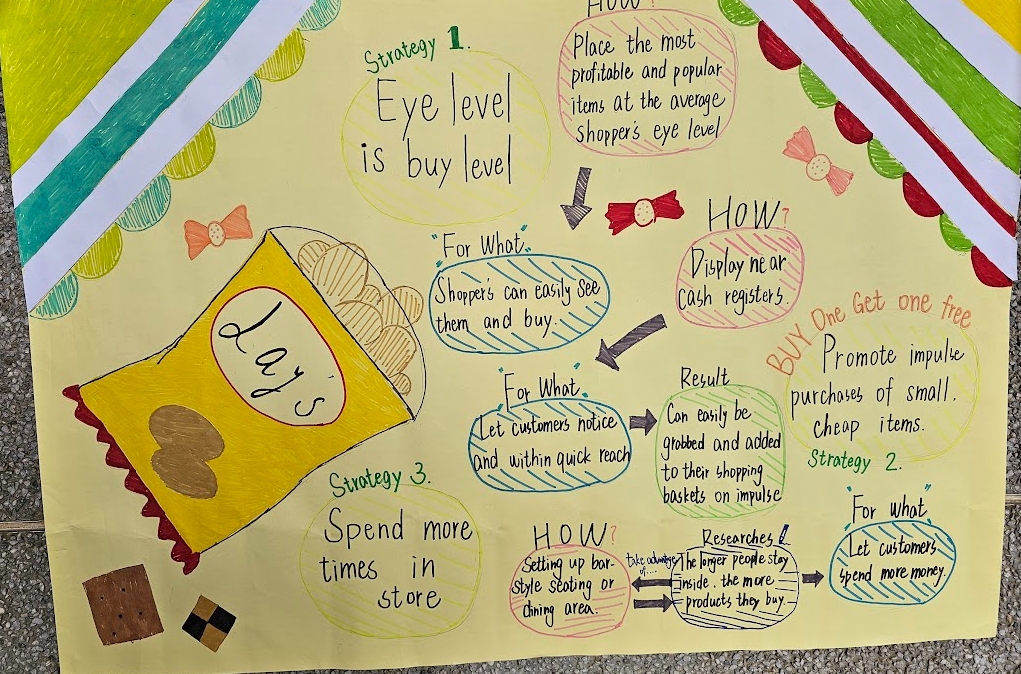 Strategy 1.
Eye level
is buy level
HOW?
Place the most
profitable and popular
items at the average
shopper's eye level
"For What"
Shopper's can easily see
them and buy.
HOW?
Display near
cash registers.
BUY One Get one free
Promote impulse
purchases of small.
cheap items.
Strategy 2.
"For What"
Let customers notice
and within quick reach
Result
Can easily be
grabbed and added
to their shopping
baskets on impulse
Lay's
Strategy 3.
Spend more
times in
store
HOW?
Setting up bar-
style seating or
dining area.
take advantage
of....
Researches
The longer people stay
inside. the more
products they buy.
"For what"
Let customers
spend more money.